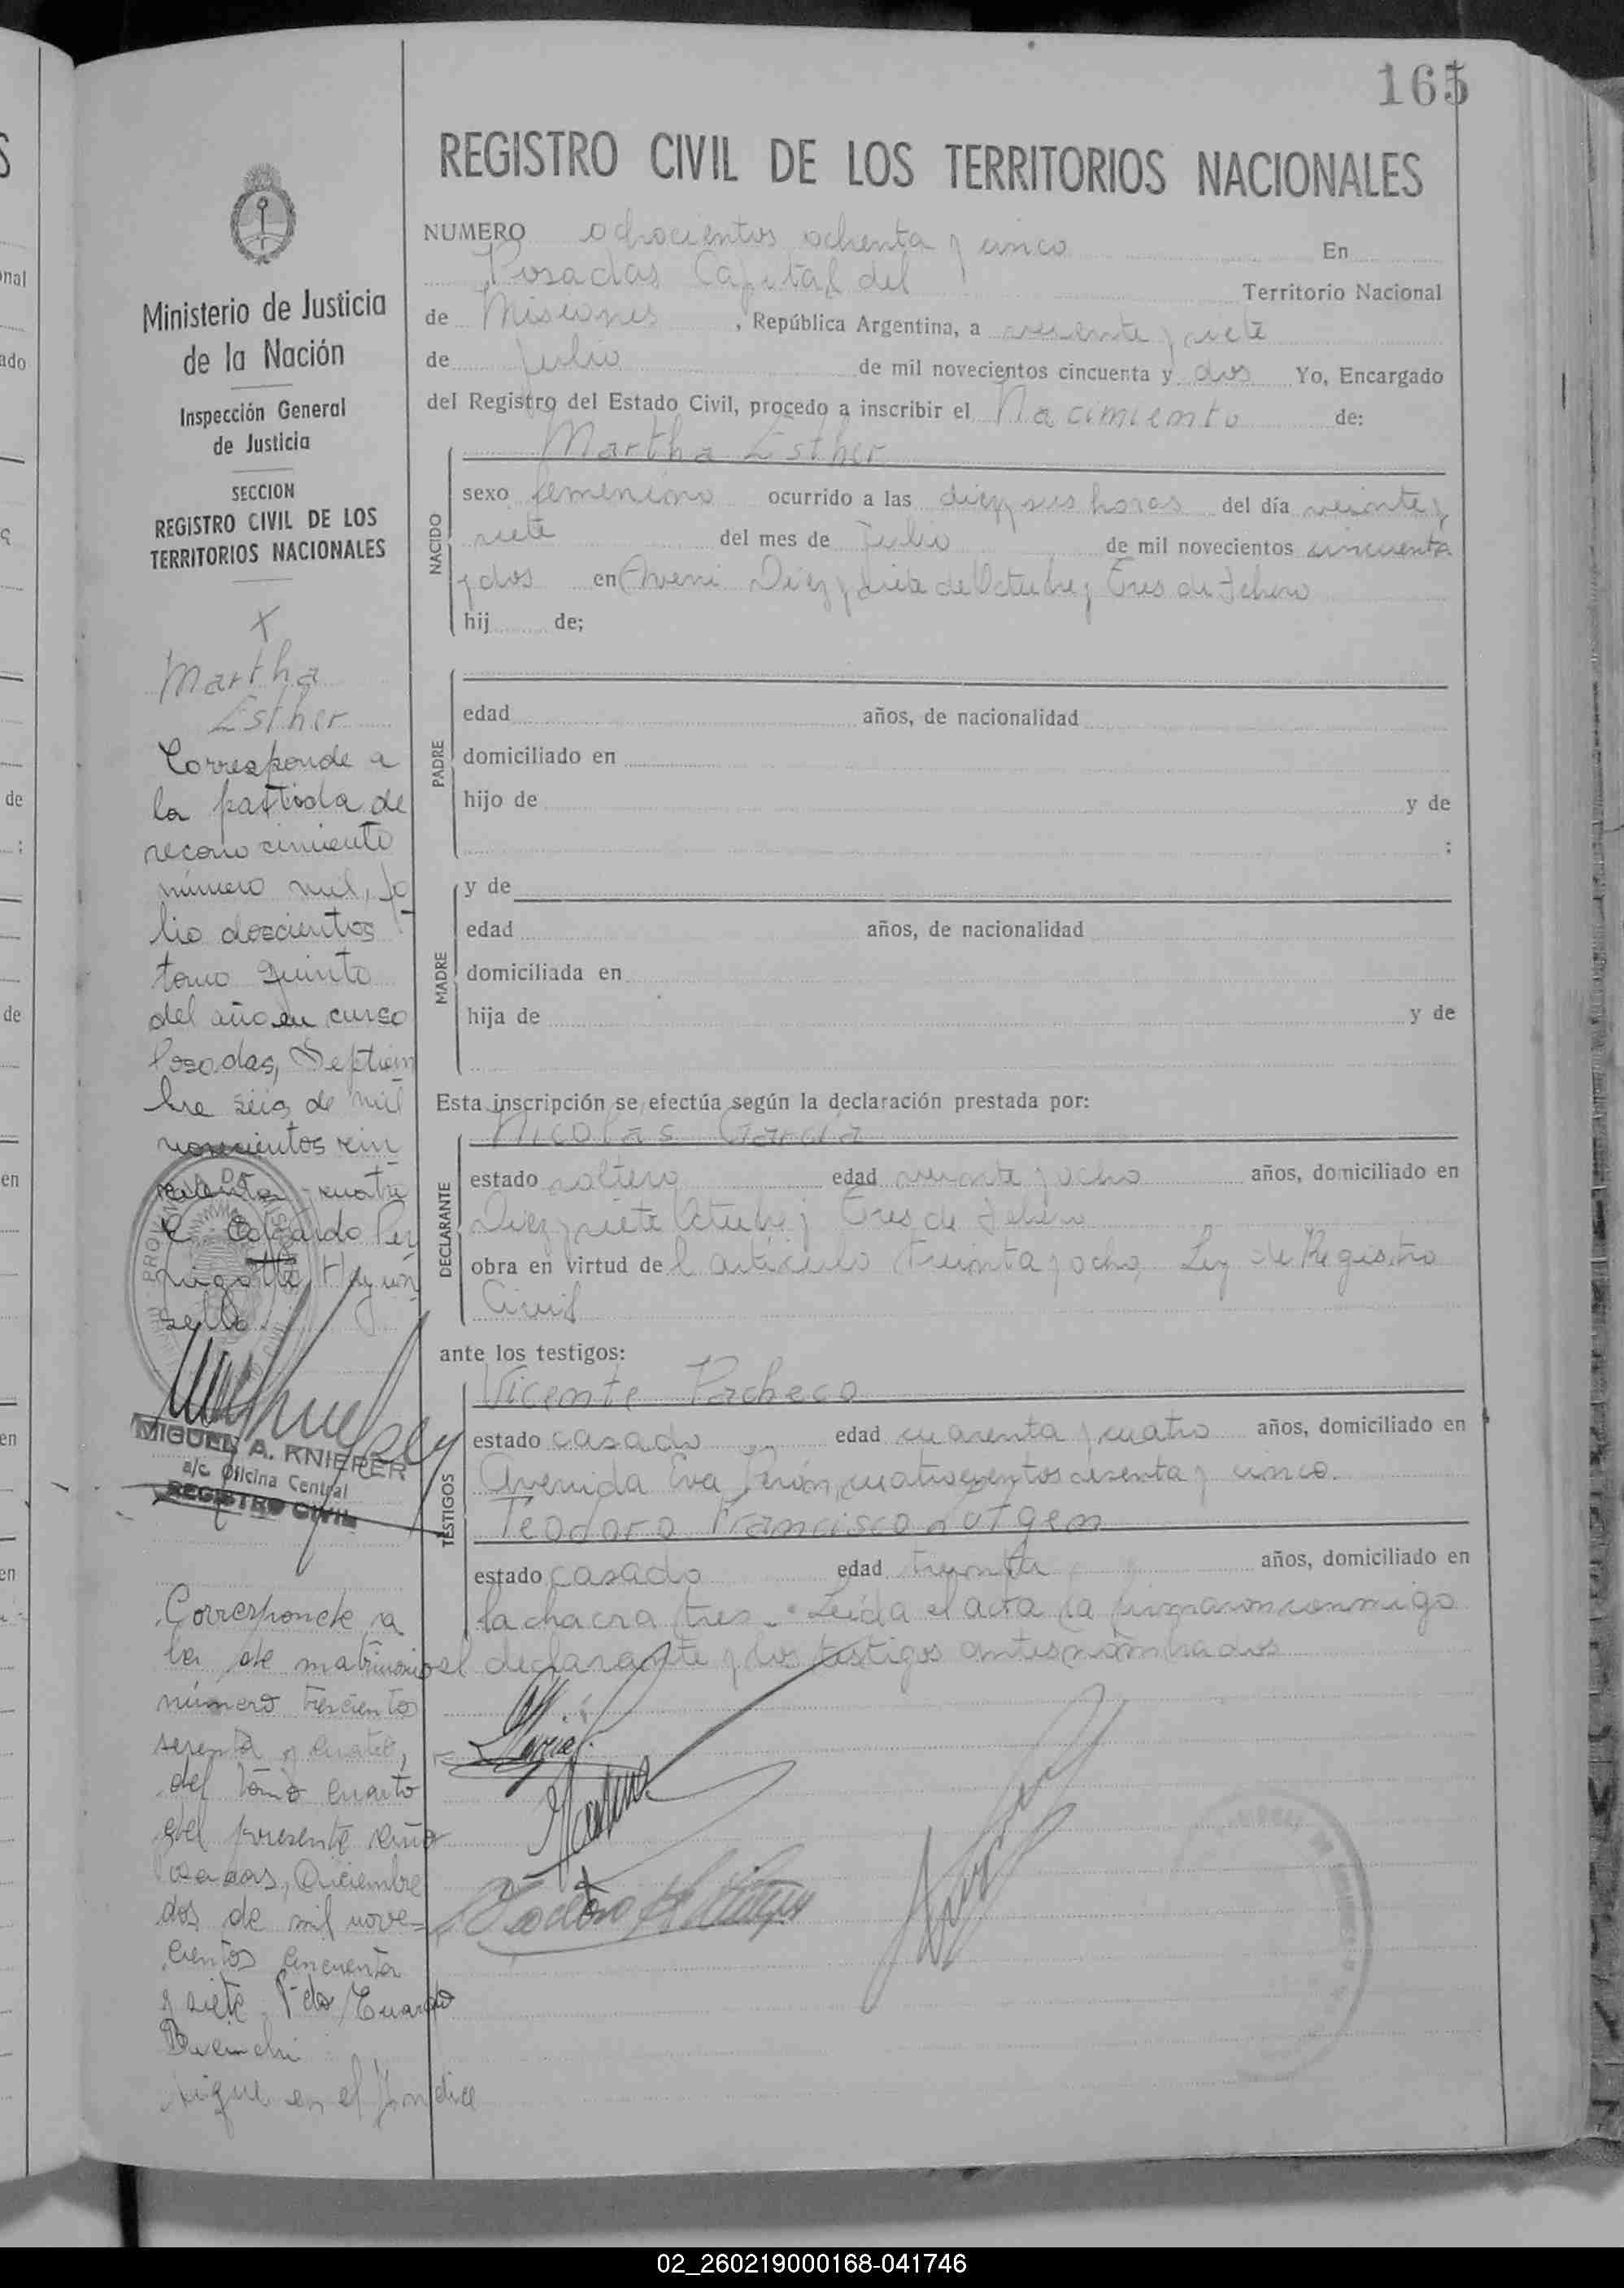 165
REGISTRO CIVIL DE LOS TERRITORIOS NACIONALES
NUMERO ochocientos ochenta y cinco En
Posadas Capital del Territorio Nacional
de Misiones, República Argentina, a veinte y siete
de Julio de mil novecientos cincuenta y dos Yo, Encargado
del Registro del Estado Civil, procedo a inscribir el Nacimiento de:
Martha Esther
NACIDO
sexo femenino ocurrido a las diez y seis horas del día veinte y
siete del mes de Julio de mil novecientos cincuenta
y dos en Diez y siete de Octubre y Tres de Febrero
hij de;
PADRE
edad años, de nacionalidad
domiciliado en
hijo de y de
;
MADRE
y de
edad años, de nacionalidad
domiciliada en
hija de y de
Esta inscripción se efectúa según la declaración prestada por:
Nicolás García
DECLARANTE
estado soltero edad veinte y ocho años, domiciliado en
Diez y siete Octubre y Tres de Febrero
obra en virtud del artículo treinta y ocho Ley de Registro
Civil
ante los testigos:
TESTIGOS
Vicente Pacheco
estado casado edad cuarenta y cuatro años, domiciliado en
Avenida Eva Perón, cuatrocientos sesenta y cinco.
Teodoro Francisco
estado casado edad treinta años, domiciliado en
la chacra tres. Leída el acta la firmaron conmigo
el declarante y los testigos antes nombrados
Ministerio de Justicia
de la Nación
Inspección General
de Justicia
SECCION
REGISTRO CIVIL DE LOS
TERRITORIOS NACIONALES
X
Martha
Esther
Corresponde a
la partida de
reconocimiento
número mil, fo
lio doscientos
tomo quinto
del año en curso
Posadas, Septiem
bre seis de mil
novecientos cin
cuenta y cuatro
Hay un
sello
MIGUEL A. KNIEPER
a/c Oficina Central
REGISTRO CIVIL
Corresponde a
la de matrimonio
número trescientos
sesenta y cuatro,
del tomo cuarto
del presente año
Posadas, Diciembre
dos de mil nove-
cientos cincuenta
y siete.
sigue en el Indice
02_260219000168-041746